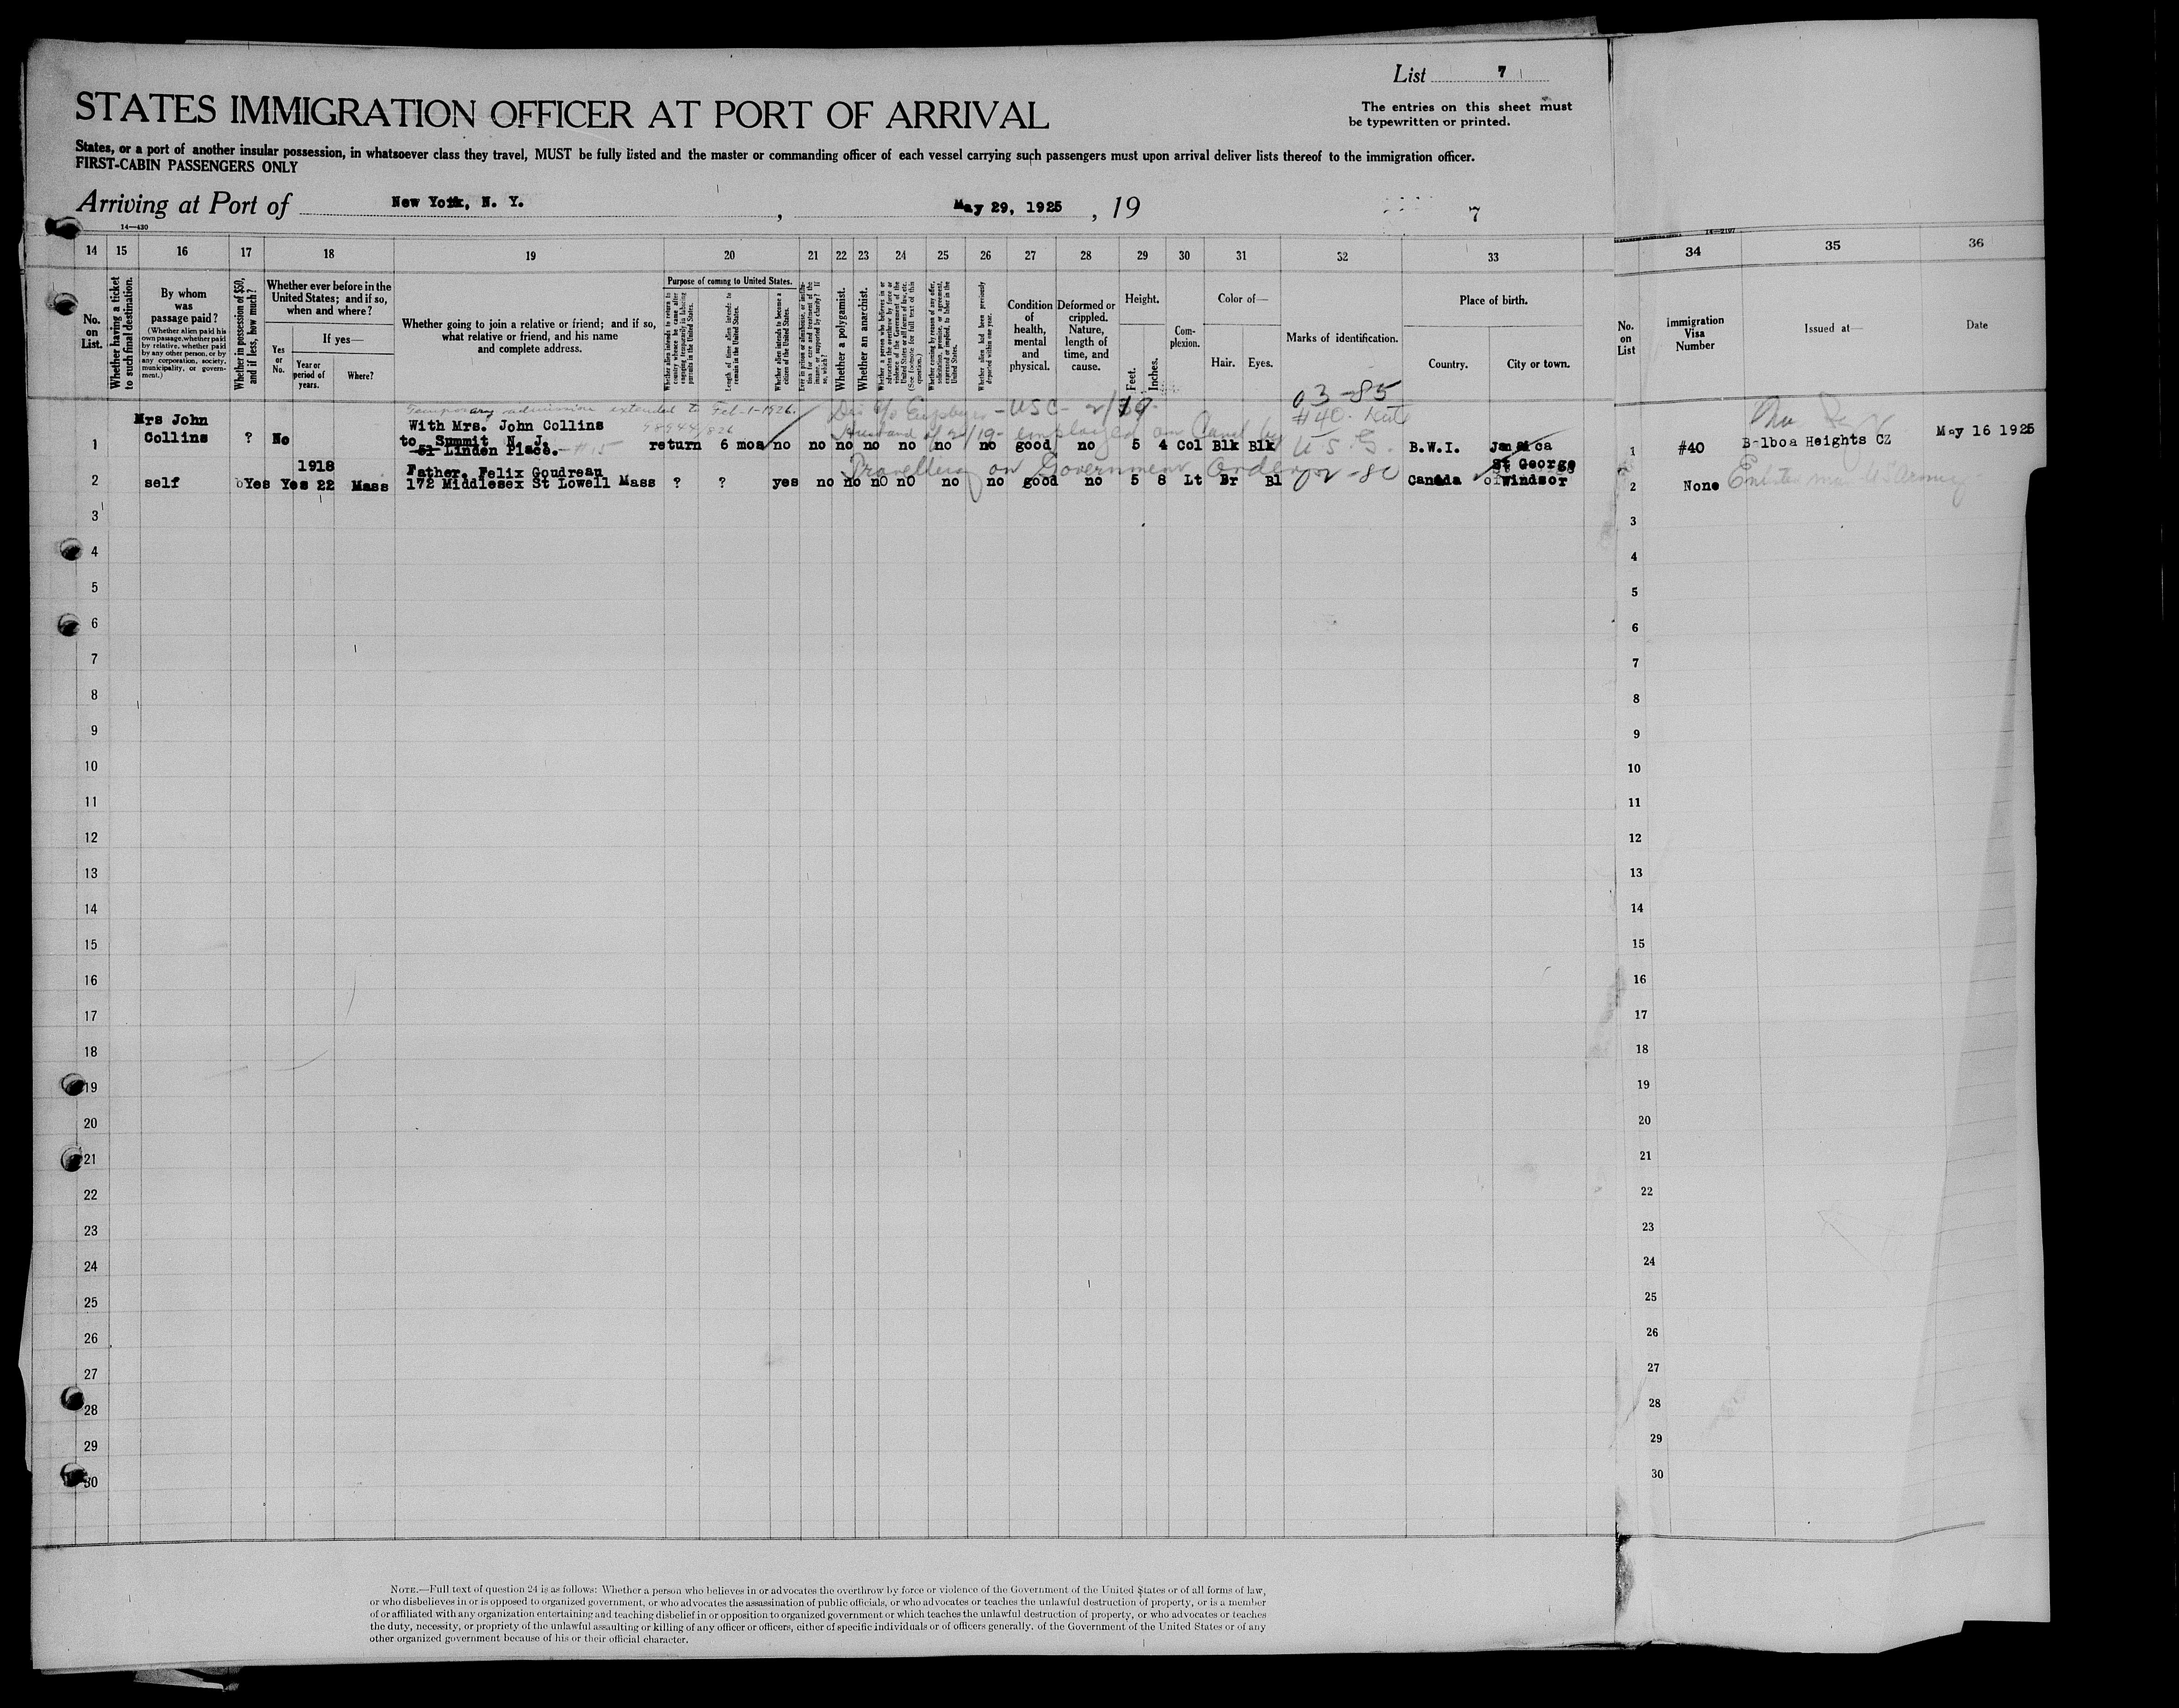 List 7
STATES IMMIGRATION OFFICER AT PORT OF ARRIVAL
The entries on this sheet must
be typewritten or printed.
States, or a port of another insular possession, in whatsoever class they travel, MUST be fully listed and the master or commanding officer of each vessel carrying such passengers must upon arrival deliver lists thereof to the immigration officer.
FIRST-CABIN PASSENGERS ONLY
Arriving at Port of New York, N. Y. , May 29, 1925 , 19
7
14—430
14 15 16 17 18 19 20 21 22 23 24 25 26 27 28 29 30 31 32 33 34 35 36
No. on List.
Whether having a ticket to such final destination.
By whom was passage paid?
(Whether alien paid his own passage, whether paid by relative, whether paid by any other person, or by any corporation, society, municipality, or government.)
Whether in possession of $50, and if less, how much?
Whether ever before in the United States; and if so, when and where?
Yes or No.
If yes—
Year or period of years.
Where?
Whether going to join a relative or friend; and if so, what relative or friend, and his name and complete address.
Purpose of coming to United States.
Whether alien intends to return to country whence he came after engaging temporarily in laboring pursuits in the United States.
Length of time alien intends to remain in the United States.
Whether alien intends to become a citizen of the United States.
Whether a polygamist.
Whether an anarchist.
Condition of health, mental and physical.
Deformed or crippled. Nature, length of time, and cause.
Height.
Feet.
Inches.
Com-
plexion.
Color of—
Hair.
Eyes.
Marks of identification.
Place of birth.
Country.
City or town.
No. on List
Immigration Visa Number
Issued at—
Date
Temporary admission extended to Feb-1-1926.
03-85
#40.
Mrs John
Collins ? No
With Mrs. John Collins
to Summit N. J.
51 Linden Place. #15
1 return 6 mos no no no no no no no good no 5 4 Col Blk Blk U.S.G. B.W.I. Jamaica 1 #40 Balboa Heights CZ May 16 1925
Husband employed on Canal by
Travelling on Government Orders
1918
Father, Felix Goudreau
St George
2 self Yes Yes 22 Mass 172 Middlesex St Lowell Mass ? ? yes no no no no no no good no 5 8 Lt Br Bl Canada of Windsor 2 None Enlisted man US Army
3 3
4 4
5 5
6 6
7 7
8 8
9 9
10 10
11 11
12 12
13 13
14 14
15 15
16 16
17 17
18 18
19 19
20 20
21 21
22 22
23 23
24 24
25 25
26 26
27 27
28 28
29 29
30 30
NOTE.—Full text of question 24 is as follows: Whether a person who believes in or advocates the overthrow by force or violence of the Government of the United States or of all forms of law,
or who disbelieves in or is opposed to organized government, or who advocates the assassination of public officials, or who advocates or teaches the unlawful destruction of property, or is a member
of or affiliated with any organization entertaining and teaching disbelief in or opposition to organized government or which teaches the unlawful destruction of property, or who advocates or teaches
the duty, necessity, or propriety of the unlawful assaulting or killing of any officer or officers, either of specific individuals or of officers generally, of the Government of the United States or of any
other organized government because of his or their official character.